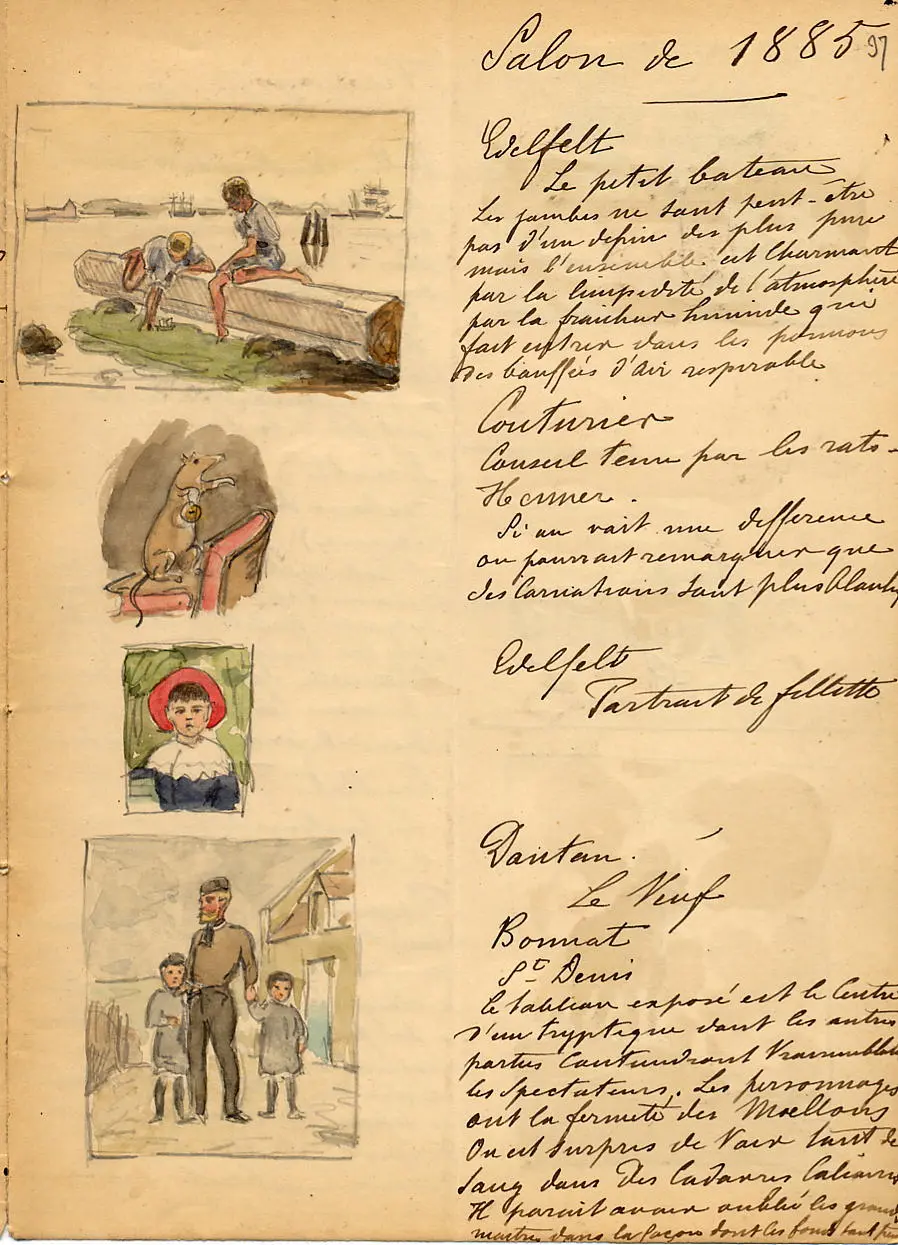 Salon de 1885
97
Edelfelt
Le petit bateau
Les jambes ne sont peut-être
pas d'un dessin des plus purs
mais l'ensemble est Charmant
par la limpidité de l'atmosphère
par la fraicheur humide qui
fait entrer dans les poumons
des bouffées d'Air respirable
Couturier
Conseil tenu par les rats-
Henner.
Si on voit une difference
on pourrait remarquer que
des Carnations sont plus
Edelfelt
Portrait de fillette
Dantan.
Le Veuf
Bonnat
St Denis
Le tableau exposé est le Centre
d'un tryptique dont les autres
parties Contiendront
les Spectateurs. Les personnages
ont la fermeté des Moellons
On est surpris de Voir tant de
Sang dans Des Cadavres
Il parait avoir oublié les grands
maitres dans la façon dont les fonds sont